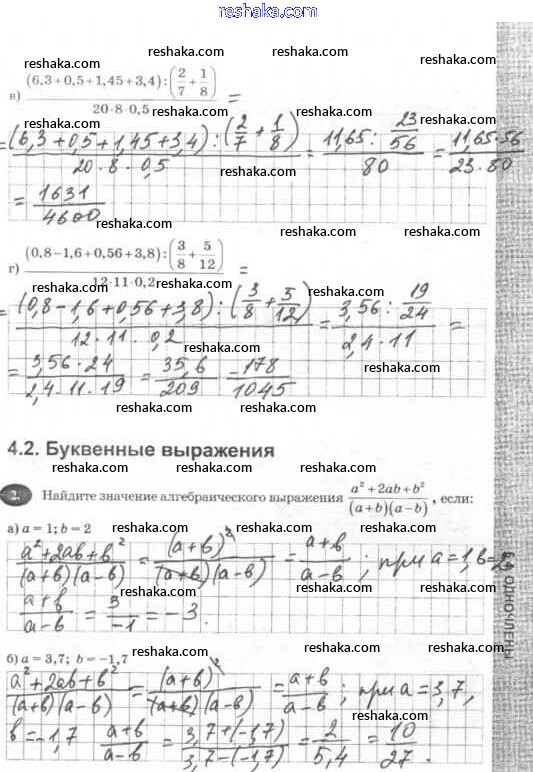 reshaka.com
reshaka.com reshaka.com reshaka.com
в) ((6,3 + 0,5 + 1,45 + 3,4) : (2/7 + 1/8)) / (20 · 8 · 0,5) =
reshaka.com reshaka.com reshaka.com
= ((6,3 + 0,5 + 1,45 + 3,4) : (2/7 + 1/8)) / (20 · 8 · 0,5) = (11,65 : 23/56) / 80 = (11,65 · 56) / (23 · 80)
reshaka.com reshaka.com reshaka.com
= 1631/4600
reshaka.com
г) ((0,8 – 1,6 + 0,56 + 3,8) : (3/8 + 5/12)) / (12 · 11 · 0,2) =
reshaka.com reshaka.com reshaka.com
= ((0,8 – 1,6 + 0,56 + 3,8) : (3/8 + 5/12)) / (12 · 11 · 0,2) = (3,56 : 19/24) / (2,4 · 11) =
reshaka.com reshaka.com reshaka.com
= (3,56 · 24) / (2,4 · 11 · 19) = 35,6/209 = 178/1045
reshaka.com reshaka.com reshaka.com
4.2. Буквенные выражения
reshaka.com reshaka.com reshaka.com
2. Найдите значение алгебраического выражения (a² + 2ab + b²) / ((a + b)(a – b)), если:
а) a = 1; b = 2
reshaka.com reshaka.com reshaka.com
(a² + 2ab + b²) / ((a + b)(a – b)) = (a + b)² / ((a + b)(a – b)) = (a + b) / (a – b); при a = 1, b = 2
reshaka.com reshaka.com reshaka.com
(a + b) / (a – b) = 3/–1 = –3.
reshaka.com reshaka.com reshaka.com
б) a = 3,7; b = –1,7
(a² + 2ab + b²) / ((a + b)(a – b)) = (a + b)² / ((a + b)(a – b)) = (a + b) / (a – b); при a = 3,7,
reshaka.com reshaka.com reshaka.com
b = –1,7 (a + b) / (a – b) = (3,7 + (–1,7)) / (3,7 – (–1,7)) = 2/5,4 = 10/27.
reshaka.com reshaka.com reshaka.com